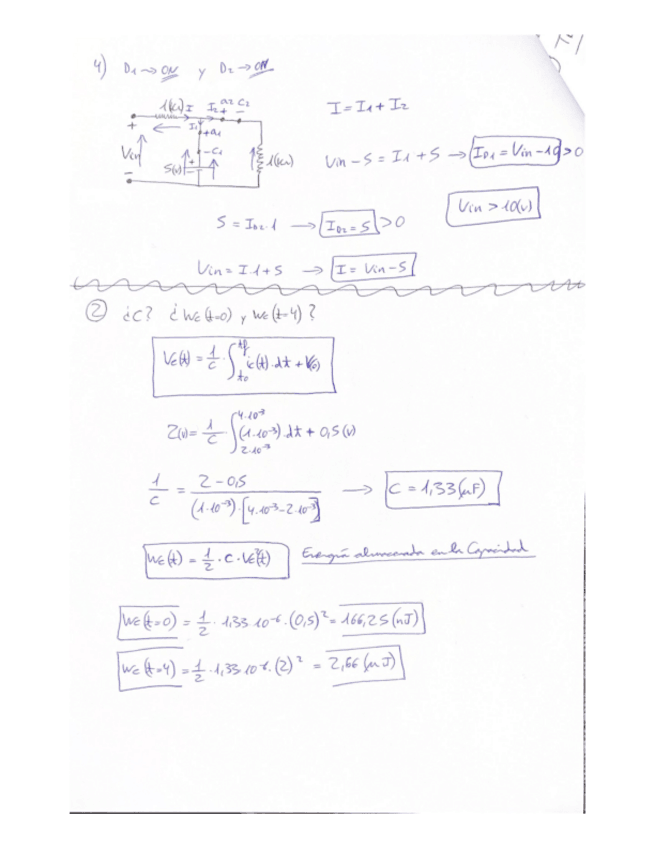 4) D1 → ON y D2 → ON
1(kΩ) I I2 a2 C2
+ I1 +
+a1
Vin - C1 1(kΩ)
5(v) +
-
I = I1 + I2
Vin - 5 = I1 + 5 → ID1 = Vin - 10 > 0
5 = ID2·1 → ID2 = 5 > 0
Vin > 10(v)
Vin = I·1 + 5 → I = Vin - 5
② ¿C? ¿Wc(t=0) y Wc(t=4)?
Vc(t) = 1/C · ∫_{to}^{tf} ic(t)·dt + V(o)
2(v) = 1/C · ∫_{2·10⁻³}^{4·10⁻³} (1·10⁻³)·dt + 0,5(v)
1/C = 2 - 0,5 / (1·10⁻³)·[4·10⁻³ - 2·10⁻³] → C = 1,33(μF)
Wc(t) = 1/2 · C · Vc²(t) Energía almacenada en la Capacidad
Wc(t=0) = 1/2 · 1,33·10⁻⁶·(0,5)² = 166,25(nJ)
Wc(t=4) = 1/2 · 1,33·10⁻⁶·(2)² = 2,66(μJ)